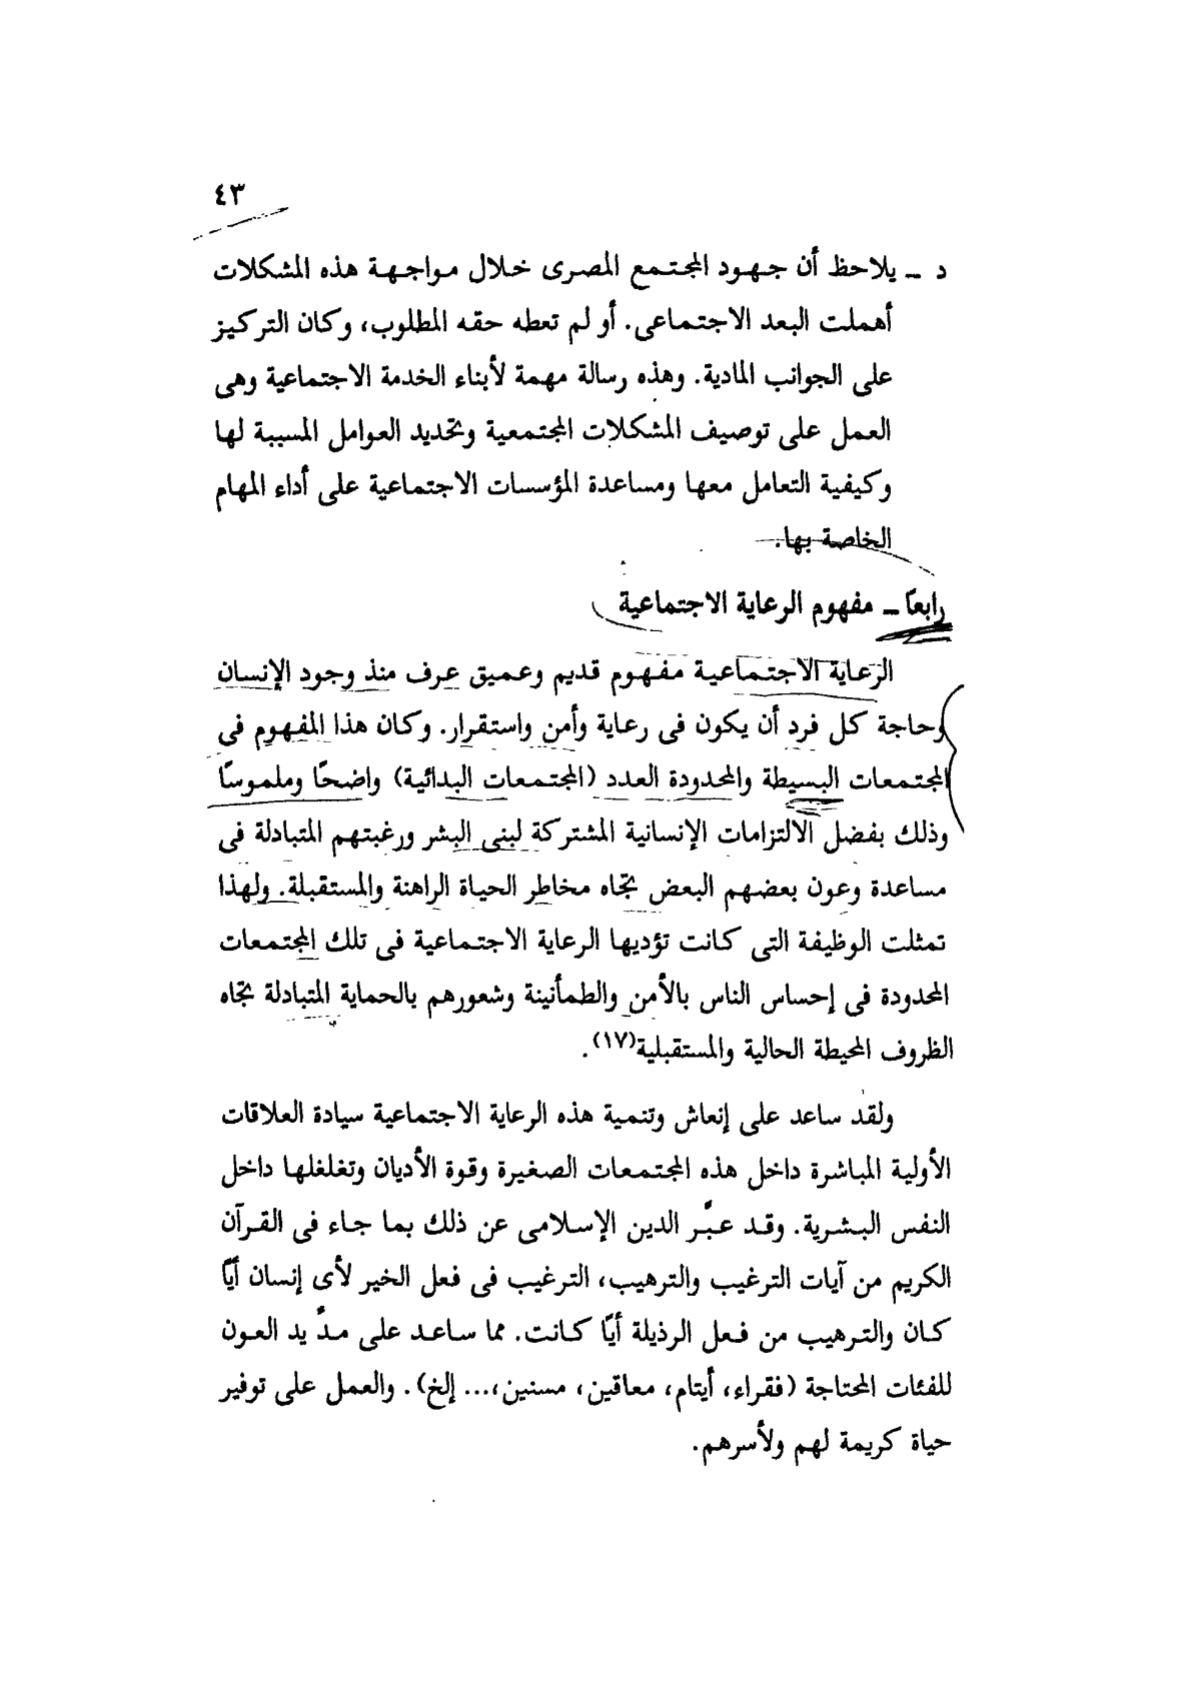 ٤٣
د ـ يلاحظ أن جهود المجتمع المصرى خلال مواجهة هذه المشكلات
أهملت البعد الاجتماعى. أو لم تعطه حقه المطلوب، وكان التركيز
على الجوانب المادية. وهذه رسالة مهمة لأبناء الخدمة الاجتماعية وهى
العمل على توصيف المشكلات المجتمعية وتحديد العوامل المسببة لها
وكيفية التعامل معها ومساعدة المؤسسات الاجتماعية على أداء المهام
الخاصة بها.
رابعًا ـ مفهوم الرعاية الاجتماعية
الرعاية الاجتماعية مفهوم قديم وعميق عرف منذ وجود الإنسان
وحاجة كل فرد أن يكون فى رعاية وأمن واستقرار. وكان هذا المفهوم فى
المجتمعات البسيطة والمحدودة العدد (المجتمعات البدائية) واضحًا وملموسًا
وذلك بفضل الالتزامات الإنسانية المشتركة لبنى البشر ورغبتهم المتبادلة فى
مساعدة وعون بعضهم البعض تجاه مخاطر الحياة الراهنة والمستقبلة. ولهذا
تمثلت الوظيفة التى كانت تؤديها الرعاية الاجتماعية فى تلك المجتمعات
المحدودة فى إحساس الناس بالأمن والطمأنينة وشعورهم بالحماية المتبادلة تجاه
الظروف المحيطة الحالية والمستقبلية(١٧).
ولقد ساعد على إنعاش وتنمية هذه الرعاية الاجتماعية سيادة العلاقات
الأولية المباشرة داخل هذه المجتمعات الصغيرة وقوة الأديان وتغلغلها داخل
النفس البشرية. وقد عبَّر الدين الإسلامى عن ذلك بما جاء فى القرآن
الكريم من آيات الترغيب والترهيب، الترغيب فى فعل الخير لأى إنسان أيًا
كان والترهيب من فعل الرذيلة أيًا كانت. مما ساعد على مدَّ يد العون
للفئات المحتاجة (فقراء، أيتام، معاقين، مسنين،... إلخ). والعمل على توفير
حياة كريمة لهم ولأسرهم.